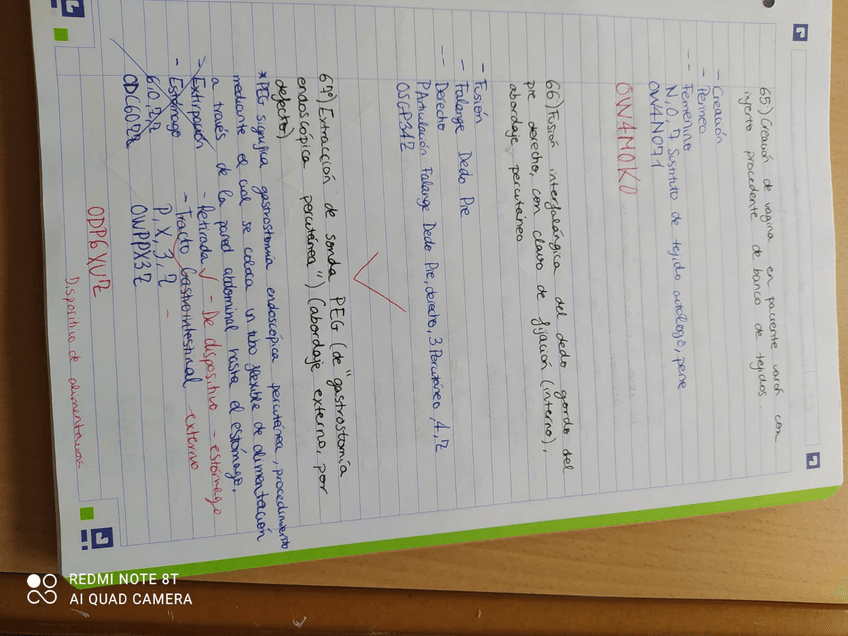 65) Creación de vagina, en paciente varón con
injerto procedente de banco de tejidos.
- Creación
- Perineo
-- Femenino
N, 0, 7 Sustituto de tejido autólogo, pene
0W4N071
0W4M0K0
66) Fusión interfalángica del dedo gordo del
pie derecho, con clavo de fijación (interno),
abordaje percutáneo
- Fusión
- Falange Dedo Pie
-- Derecho
P Articulación Falange Dedo Pie, derecho, 3 Percutáneo, 4, Z
0SGP34Z
67) Extracción de sonda PEG (de "gastrostomía
endoscópica percutánea") (abordaje externo, por
defecto)
*PEG significa gastrostomía endoscópica percutánea, procedimiento
mediante el cual se coloca un tubo flexible de alimentación
a través de la pared abdominal hasta el estómago.
- Extirpación - Retirada - De dispositivo - estómago
- Estómago - Tracto Gastrointestinal externo
6, 0, Z, Z P, X, 3, Z
0DC60ZZ 0WPPX3Z
0DP6XUZ
Dispositivo de alimentación
REDMI NOTE 8T
AI QUAD CAMERA